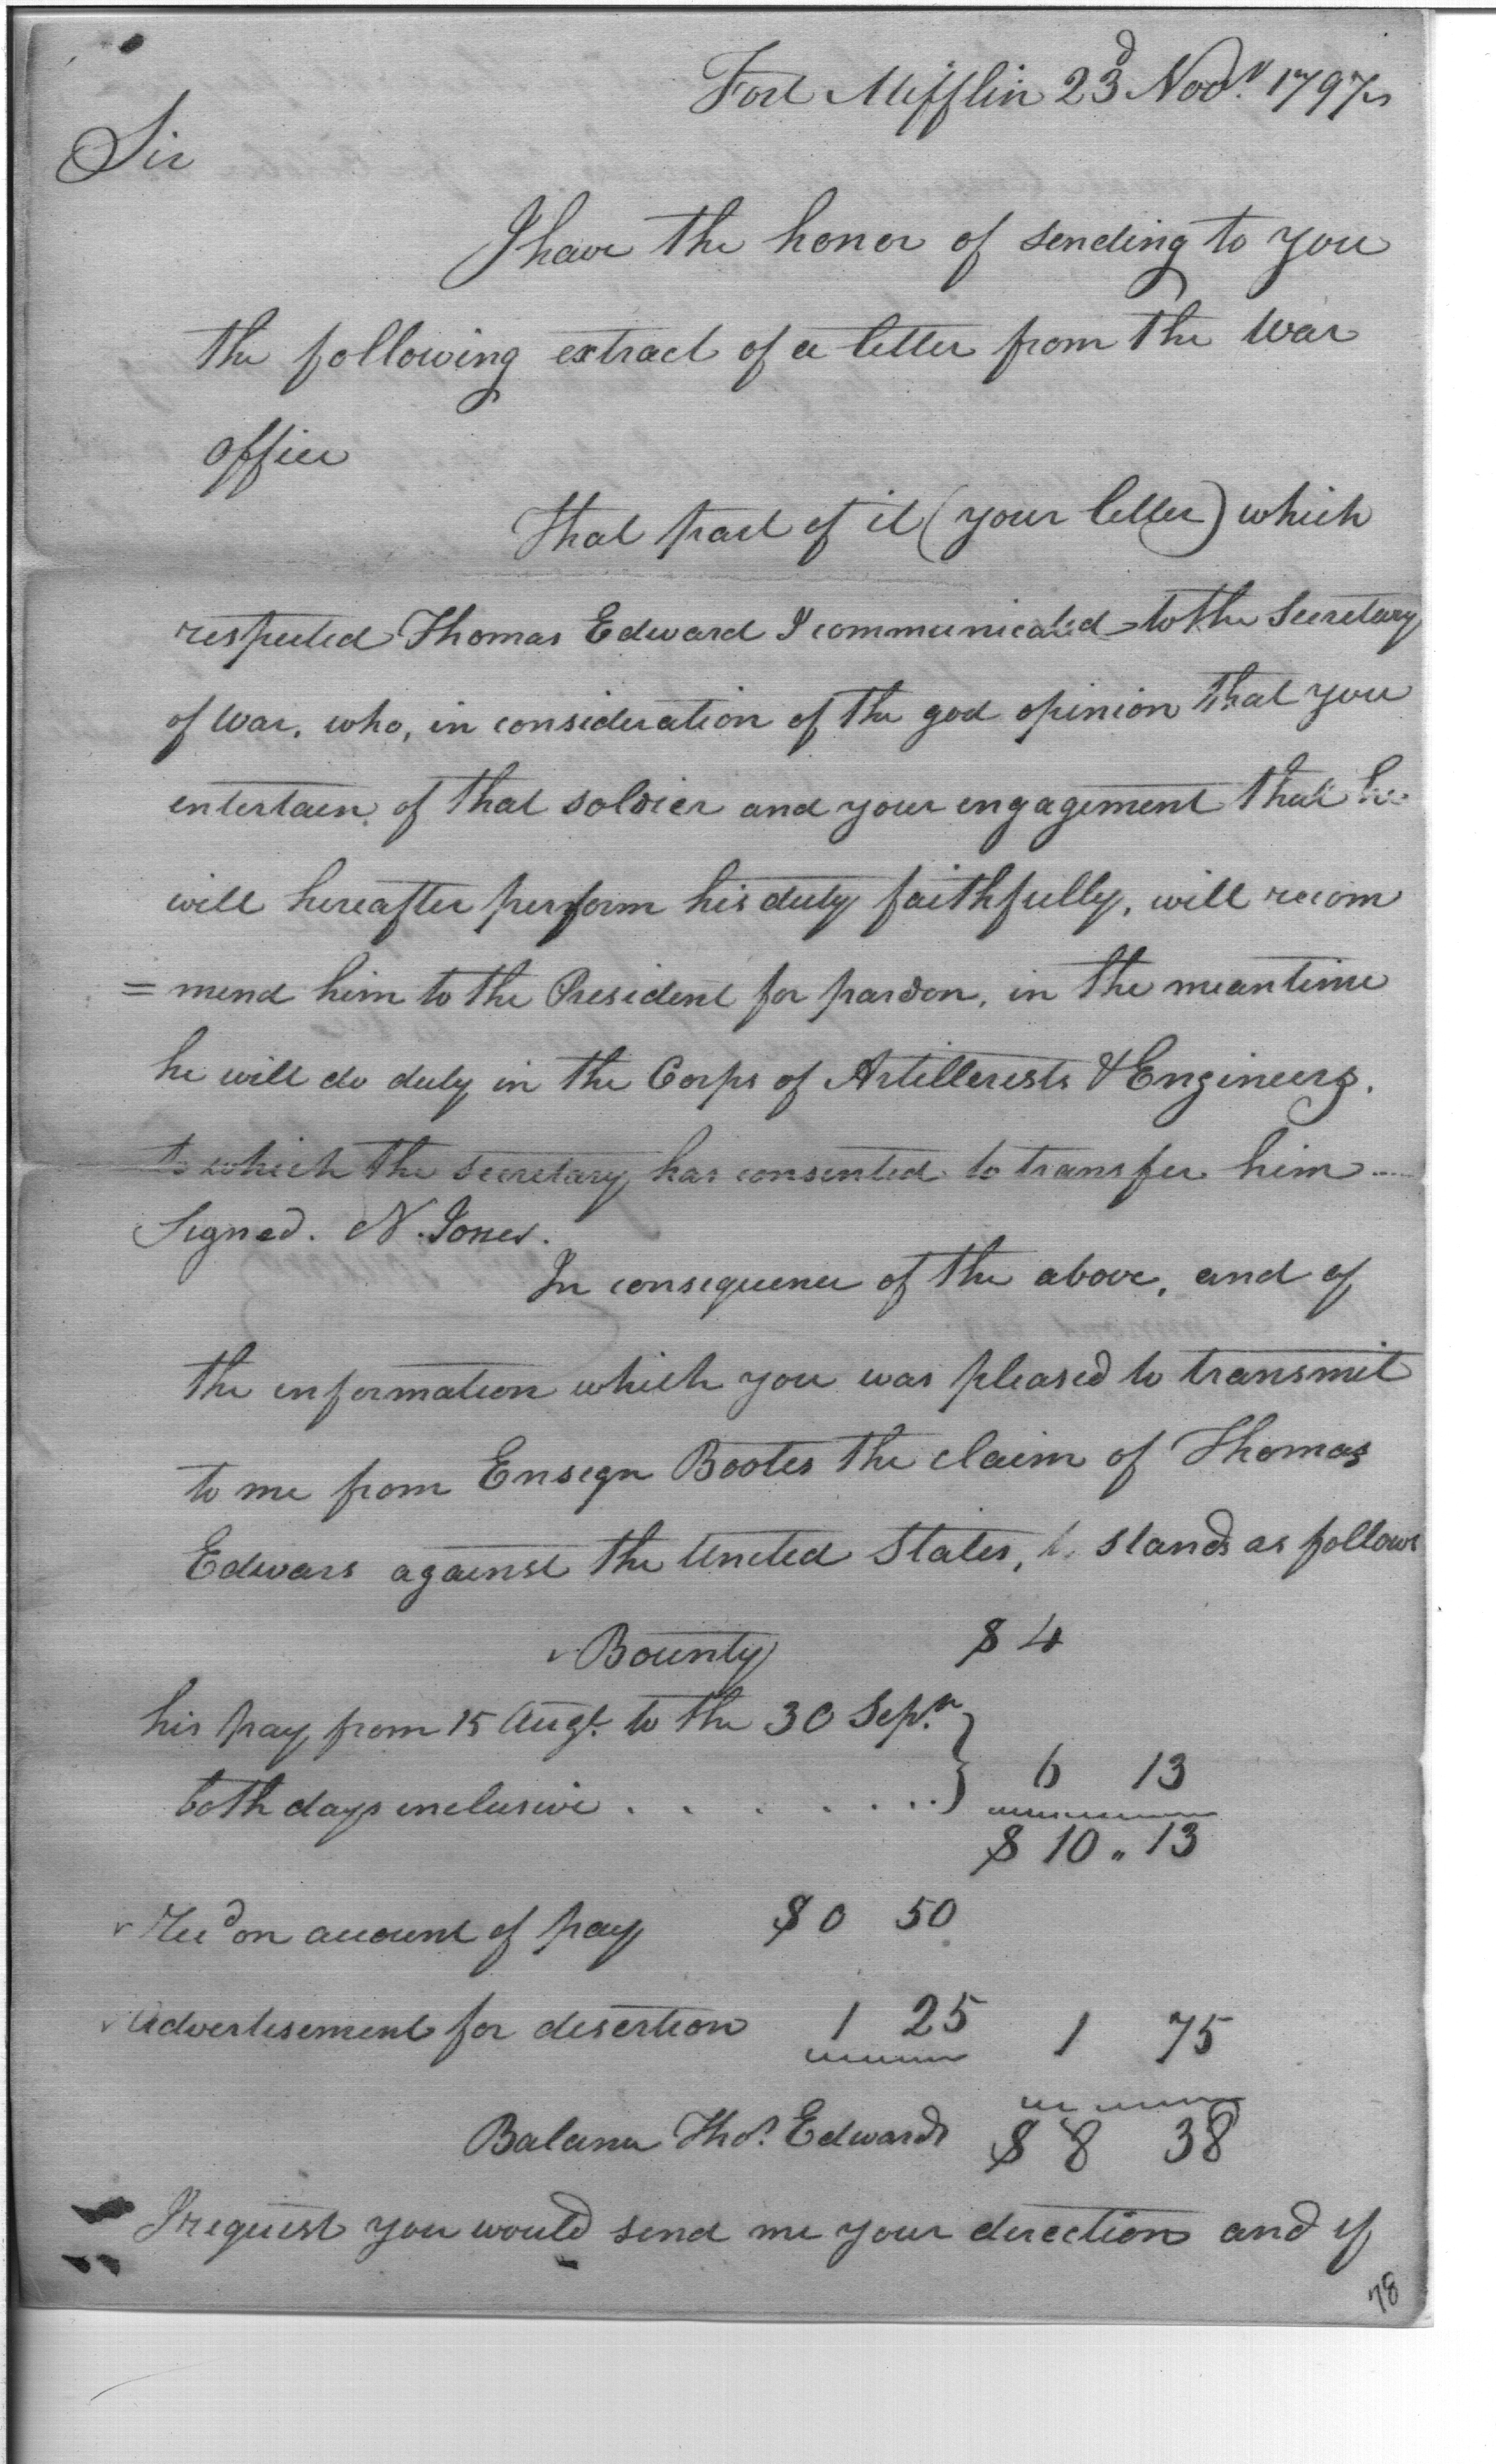 Fort Mifflin 23d Novr. 1797
Sir
I have the honor of sending to you
the following extract of a letter from the War
office
That part of it (your letter) which
respected Thomas Edward I communicated to the Secretary
of War, who, in consideration of the god opinion that you
entertain of that soldier and your engagement that he
will hereafter perform his duty faithfully, will recom
= mend him to the President for pardon, in the meantime
he will do duty in the Corps of Artillerists & Engineers.
to which the secretary has consented to transfer him ....
Signed. N. Jones.
In consequence of the above, and of
the information which you was pleased to transmit
to me from Ensign Bootes the claim of Thomas
Edwars against the United States, stands as follows
Bounty $ 4
his pay from 15 Augt. to the 30 Sepr. }
both days inclusive . . . . . . . . } 6 13
$ 10 " 13
Recd on account of pay $ 0 50
Advertisement for desertion 1 25 1 75
Balance Thos. Edwards $ 8 38
I request you would send me your direction and if
78